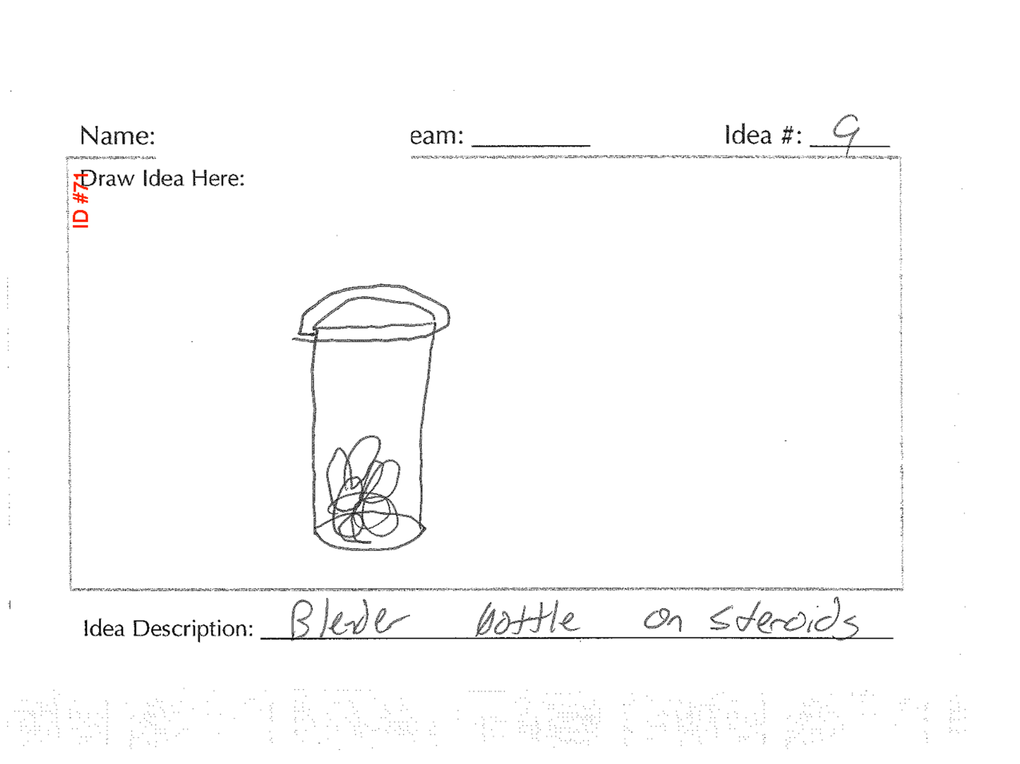 Name: eam: Idea #: 9
Draw Idea Here:
ID #71
Idea Description: Bleder bottle on steroids